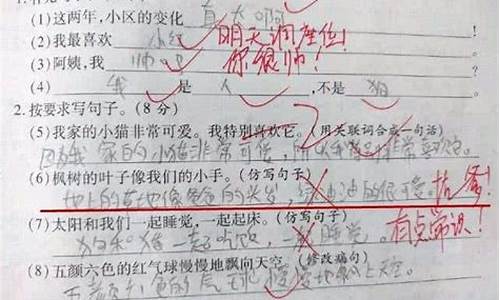 (1)这两年,小区的变化 真大啊
(2)我最喜欢 小红 明天调座位!
(3)阿姨,我 帅吧 你很帅!
(4) 我 是 人 ,不是 狗
2.按要求写句子。(8 分)
(5)我家的小猫非常可爱。我特别喜欢它。(用关联词合成一句话)
因为我家的小猫非常可爱,所以我非常喜欢它。
(6)枫树的叶子像我们的小手。(仿写句子)
地上的草地像爸爸的头发,绿油油的很可爱。
(7)太阳和我们一起睡觉,一起起床。(仿写句子) 有点常识!
狗和猪一起吃饭,一起睡觉。
(8)五颜六色的红气球慢慢地飘向天空。(修改病句)
五颜六色的气球慢慢地飘上天空。